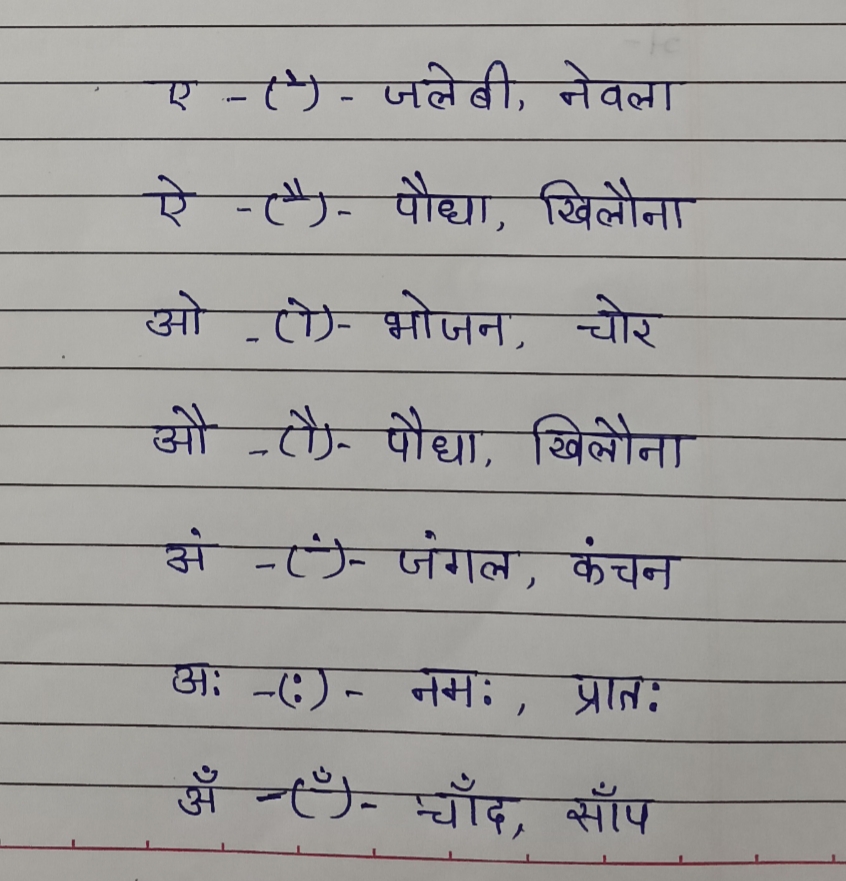 ए - (े) - जलेबी, नेवला
ऐ - (ै) - पौधा, खिलौना
ओ - (ो) - भोजन, चोर
औ - (ौ) - पौधा, खिलौना
अं - (ं) - जंगल, कंचन
अः - (ः) - नमः, प्रातः
अँ - (ँ) - चाँद, साँप